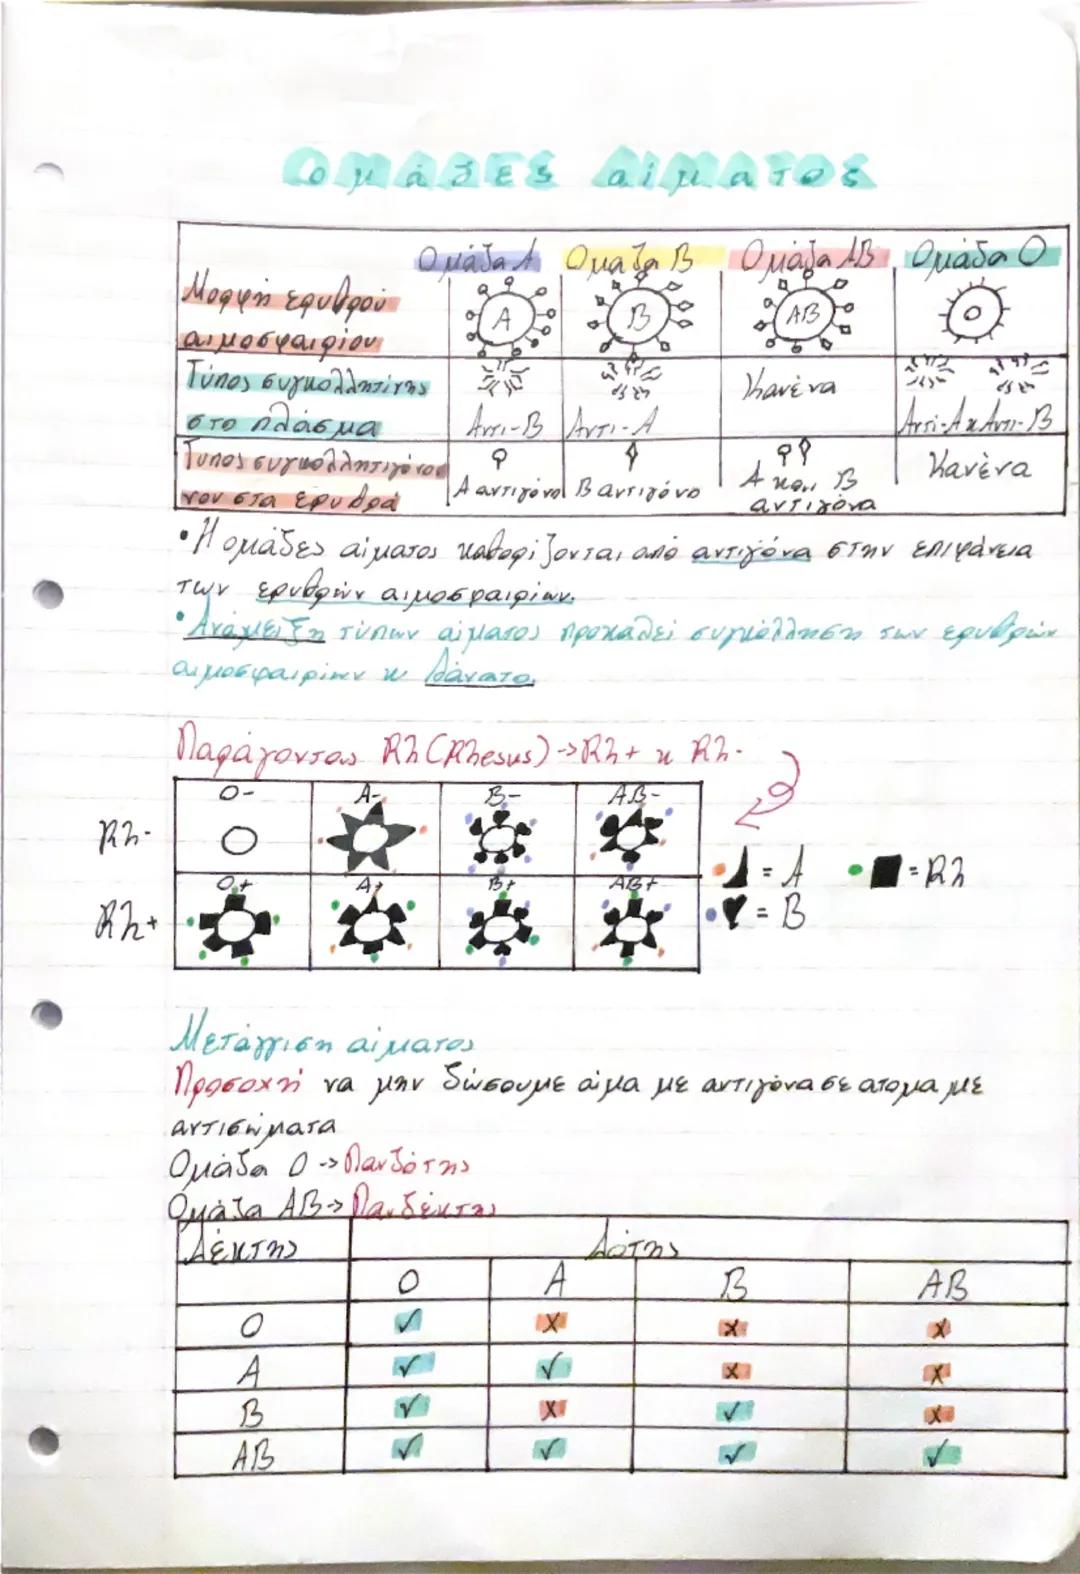 Ομάδες αίματος
Ομάδα Α Ομάδα Β Ομάδα ΑΒ Ομάδα Ο
Μορφή ερυθρού αιμοσφαιρίου
Α Β ΑΒ Ο
Τύπος συγκολλητίνης στο πλάσμα
Αντι-Β Αντι-Α Κανένα Αντι-Α κ Αντι-Β
Τύπος συγκολλητιγόνου στα ερυθρά
Α αντιγόνο Β αντιγόνο Α και Β αντιγόνα Κανένα
• Η ομάδες αίματος καθορίζονται από αντιγόνα στην επιφάνεια
των ερυθρών αιμοσφαιρίων.
• Ανάμειξη τύπων αίματος προκαλεί συγκόλληση των ερυθρών
αιμοσφαιρίων κ θάνατο.
Παράγοντας Rh (Rhesus) -> Rh+ κ Rh-
O- A- B- AB-
Rh-
O+ A+ B+ AB+
Rh+
= A = Rh
= B
Μετάγγιση αίματος
Προσοχή να μην δώσουμε αίμα με αντιγόνα σε άτομα με
αντισώματα
Ομάδα Ο -> Πανδότης
Ομάδα ΑΒ -> Πανδέκτης
Δέκτης Δότης
Ο Α Β ΑΒ
Ο ✓ x x x
Α ✓ ✓ x x
Β ✓ x ✓ x
ΑΒ ✓ ✓ ✓ ✓